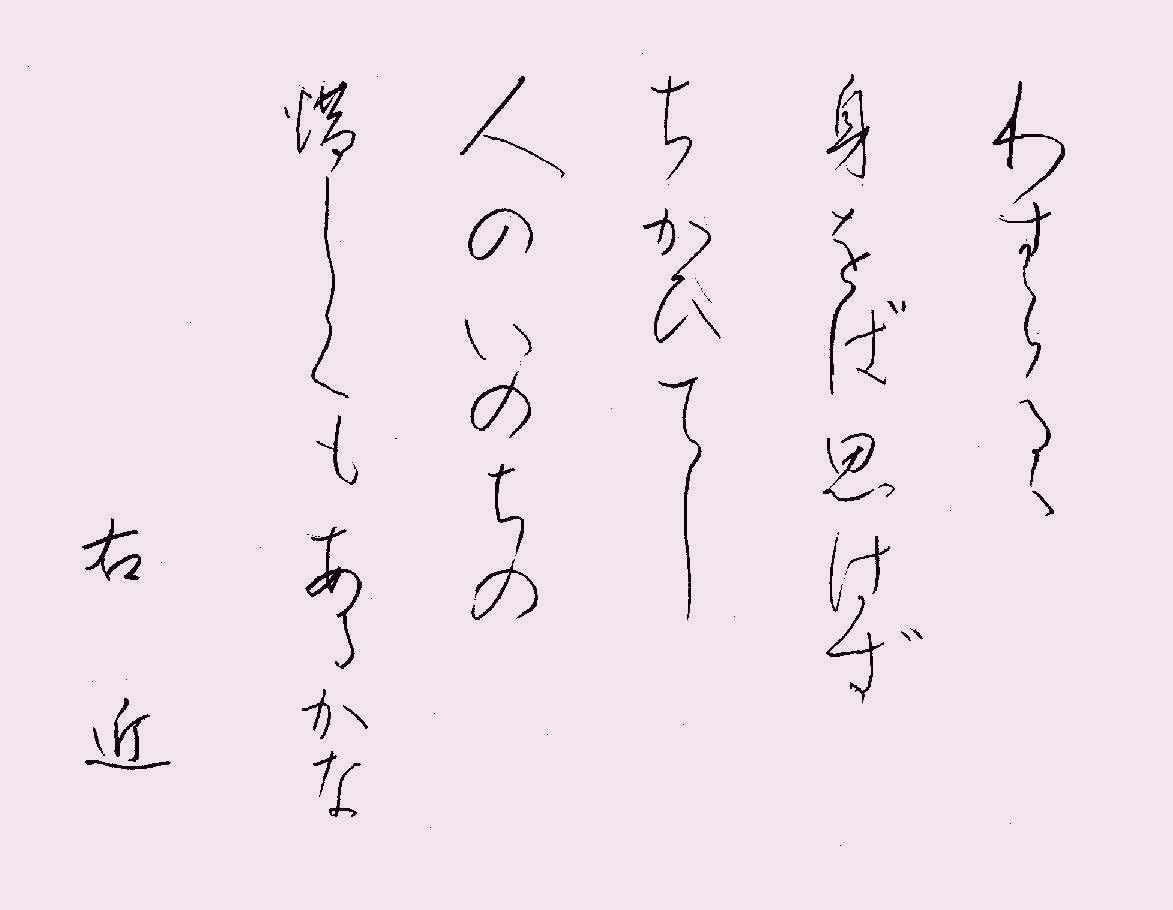 わすらるゝ
身をば思はず
ちかひてし
人のいのちの
惜しくもあるかな
右近